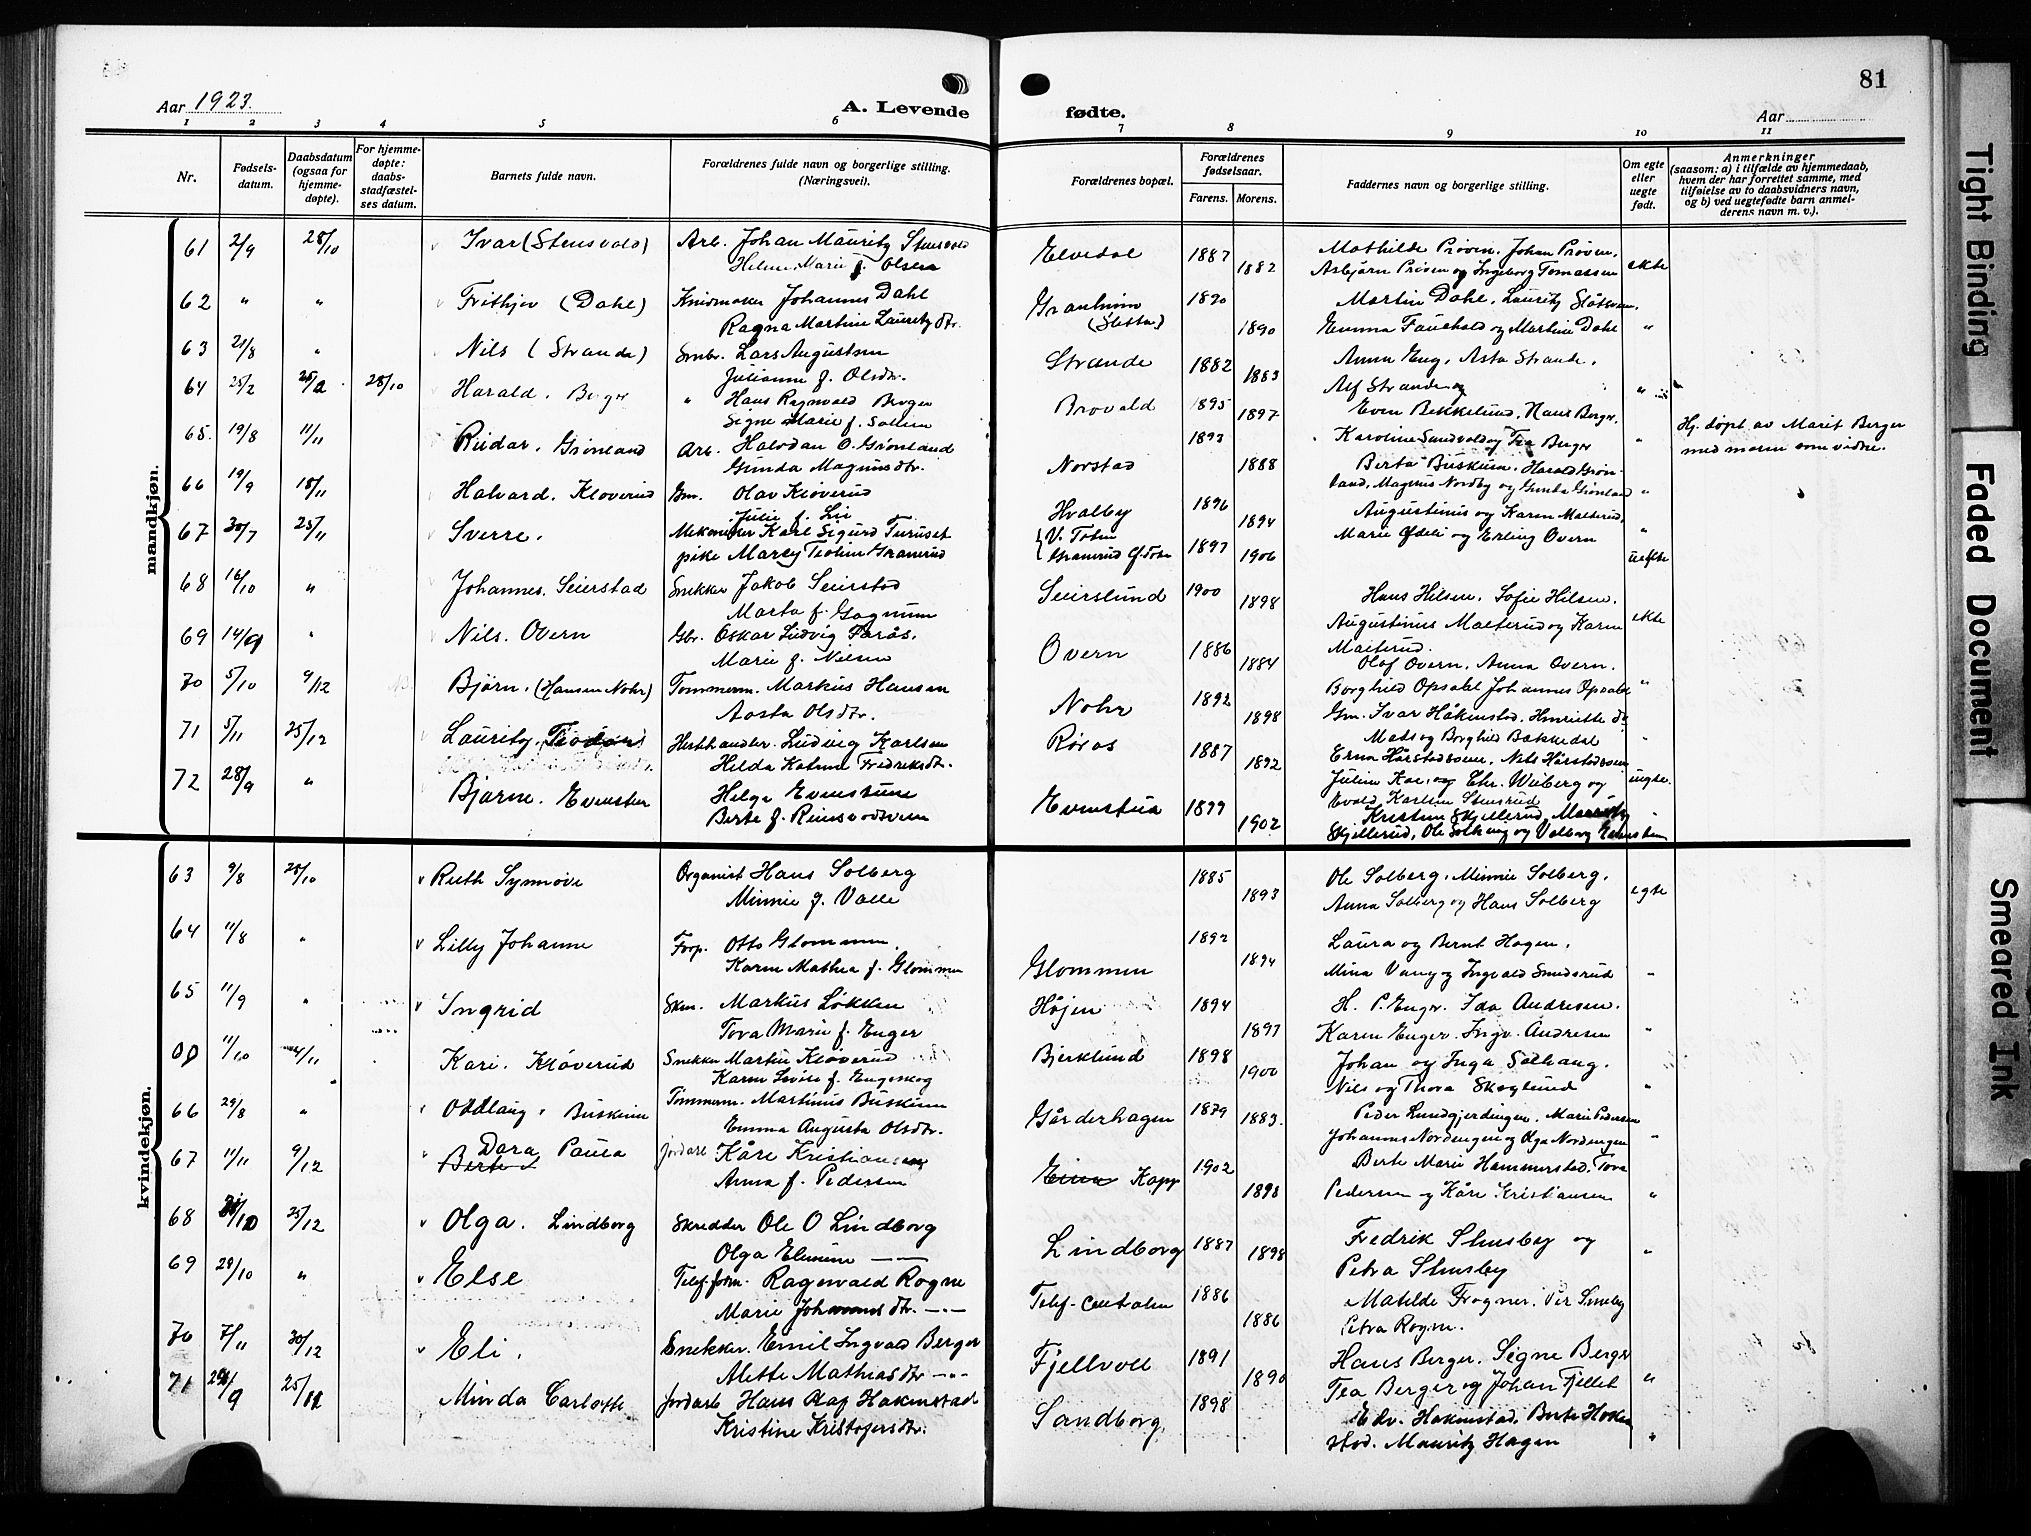 81
Aar 1923.
A. Levende
fødte.
Aar
1 2 3 4 5 6 7 8 9 10 11
Nr.
Fødsels-
datum.
Daabsdatum
(ogsaa for
hjemme-
døpte).
For hjemme-
døpte:
daabs-
stadfæstel-
ses datum.
Barnets fulde navn.
Forældrenes fulde navn og borgerlige stilling.
(Næringsvei).
Forældrenes bopæl.
Forældrenes
fødselsaar.
Farens. Morens.
Faddernes navn og borgerlige stilling.
Om egte
eller
uegte
født.
Anmerkninger
(saasom: a) i tilfælde av hjemmedaab,
hvem der har forrettet samme, med
tilføielse av to daabsvidners navn,
og b) ved uegtefødte barn anmel-
derens navn m. v.).
mandkjøn.
61 2/9 28/10 Ivar (Stensvold) Arb. Johan Mauritz Stensvold Elvedal 1887 Mathilde Prøven, Johan Prøven,
Helene Marie f. Olsen 1882 Asbjørn Prøven og Ingeborg Tomassen ekte
62 " " Frithjov (Dahl) Johannes Dahl Granheim 1890 Martin Dahl, Lauritz
Ragna Martine Lauritzdtr. (Sletta) 1890 Emma Fauchald og Martine Dahl "
63 21/8 " Nils (Strande) Smbr. Lars Augustsen Strande 1882 Anna Eng, Asta Strande,
Julianne f. Olsdtr. 1883 Alf Strande og
64 25/2 28/10 Harald. Berger " Hans Ragnvald Berger Brovald 1895 Even Bekkelund, Hans Berger,
Signe Marie f. Sollien 1897 Karoline Sundvold og Tea Berger "
Hj. døpt av Marit Berger
med moren som vidne.
65. 19/8 11/11 Reidar. Grønland Arb. Halvdan O. Grønland Norstad 1893 Berta Buskum. Harald Grøn-
Gunda Magnusdtr. 1888 land, Magnus Nordby og Gunda Grønland "
66 19/9 18/11 Halvard. Kløverud Gm. Olav Kløverud Hvalby 1896 Augustinus og Karen Malterud,
Julie f. Lie 1894 Marie Ødeli og Erling Overn "
67 30/7 25/11 Sverre. Mekaniker Karl Sigurd Turuset V. Toten 1897
pike Marey 1906 uekte
68 16/10 " Johannes. Seierstad Snekker Jakob Seierstad Seierslund 1900 Hans Hilsen. Sofie Hilsen.
Marta f. Gagnum 1898 Augustinus Malterud og Karen ekte
69 14/9 " Nils. Overn Gbr. Oskar Ludvig Overn 1886 Malterud.
Marie f. Nielsen 1884 Olaf Overn, Anna Overn.
70 5/10 9/12 Bjørn. (Hansen Nohr) Tømmerm. Markus Hansen Nohr 1892 Borghild Opsahl Johannes Opsahl "
Aasta Olsdtr. 1898 Gm. Ivar Håkenstad. Henriette do
71 5/11 25/12 Lauritz. Hesthandler. Ludvig Karlsen Røros 1887 Mads og Borghild Bakkedal "
Helda Katrine Fredriksdtr. 1892
72 28/9 " Bjarne. Evenstuen Helge Evenstuen Evenstua 1899
Berte f. Reinsvodsveen 1902 Skjellerud, Ole Solhaug og Valborg Evenstuen
kvindekjøn.
63 9/8 28/10 Ruth Synnøve Organist Hans Solberg 1885 Ole Solberg, Minnie Solberg,
Minnie f. Valle 1893 Anna Solberg og Hans Solberg egte
64 11/8 " Lilly Johanne Forp. Otto Glommen, Glommen 1892 Laura og Bernt Hagen,
Karen Mathea f. Glommen 1894 Mina Vang og Ingvald Smedsrud "
65 11/9 " Ingrid Skm. Markus Løkken Højen 1894 H. P. Enger. Ida Andresen.
Tova Marie f. Enger 1897 Karen Enger. Ingv. Andresen "
11/10 4/11 Kari. Kløverud Snekker Martin Kløverud Bjerklund 1898 Johan og Inga Solhaug.
Karen Lovise f. Engeskog 1900 Nils og Thora Skoglund "
66 29/8 " Oddlaug. Buskum Tømmerm. Martinus Buskum Gårderhagen 1879 Peder Lundgjerdingen, Marie Pedersen
Emma Augusta Olsdtr. 1883. Johannes Nordengen og Olga Nordengen "
67 11/11 9/12 Dora Paula Jordarb. Kåre Kristiansen Eina Kapp 1902 Berte Marie Hammerstad. Tova
Berte Anna f. Pedersen 1898 Pedersen og Kåre Kristiansen "
68 25/12 Olga. Lindborg Skredder Ole O Lindborg Lindborg 1887 Fredrik Stensby og
Olga Elmine — — 1898 Petra Stensby "
69 29/10 " Else Telef.form. Ragnvald Rogne Telef-centralen 1886 Matilde Frogner. Per Stensby
Marie Johannesdtr. — 1886 Petra Rogne.
70 7/11 30/12 Eli. Snekker. Emil Ingvald Berger Fjellvoll 1891 Hans Berger. Signe Berger
Alette Mathiasdtr — 1890 Tea Berger og Johan Fjellet "
71 29/9 25/11 Minda Carlotte Jordarb Hans Olaf Hakenstad Sandborg 1898 Edv. Hakenstad. Berte Haken
Kristine Kristofersdtr. stad. Mauritz Hagen "
Tight Binding
Faded Document
Smeared Ink